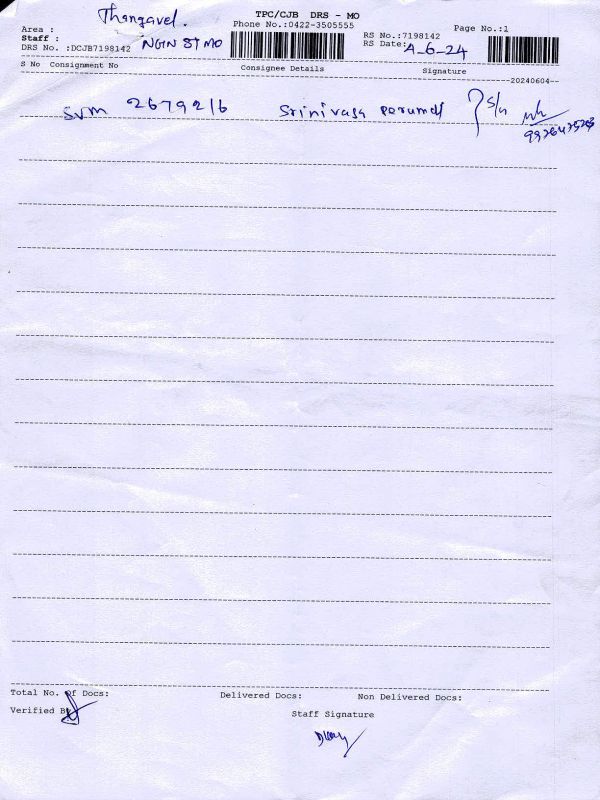 Thangavel.
TPC/CJB DRS - MO
Area :
Phone No.:0422-3505555
Page No.:1
Staff :
RS No.:7198142
DRS No. :DCJB7198142 NGN ST MO
RS Date: 4-6-24
S No Consignment No Consignee Details Signature
20240604
SVM 2679216 Srinivasa perumal
Total No. Of Docs: Delivered Docs: Non Delivered Docs:
Verified By
Staff Signature